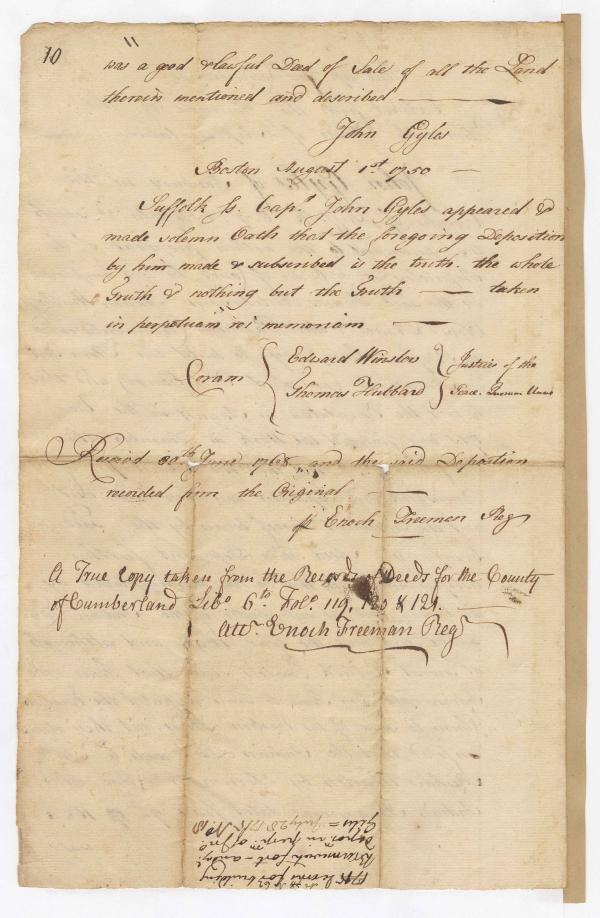 10
was a good & lawful Deed of Sale of all the Land
therein mentioned and described
John Gyles
Boston August 1st 1750
Suffolk ss. Capt. John Gyles appeared &
made solemn Oath that the foregoing Deposition
by him made & subscribed is the truth. the whole
Truth & nothing but the Truth — taken
in perpetuam rei memoriam
Coram { Edward Winslow } Justices of the
Thomas Hubbard } Peace. Quorum Unus
Received 30th June 1768 and the said Depostion
recorded from the Original
p Enoch Freeman Reg
A True Copy taken from the Records of Deeds for the County
of Cumberland Libo 6to Folo 119, 120 & 121.
Attr. Enoch Freeman Regr
for building
Brunswick fort
in perpm. of Jno
Giles = July 28 1715 No. 10